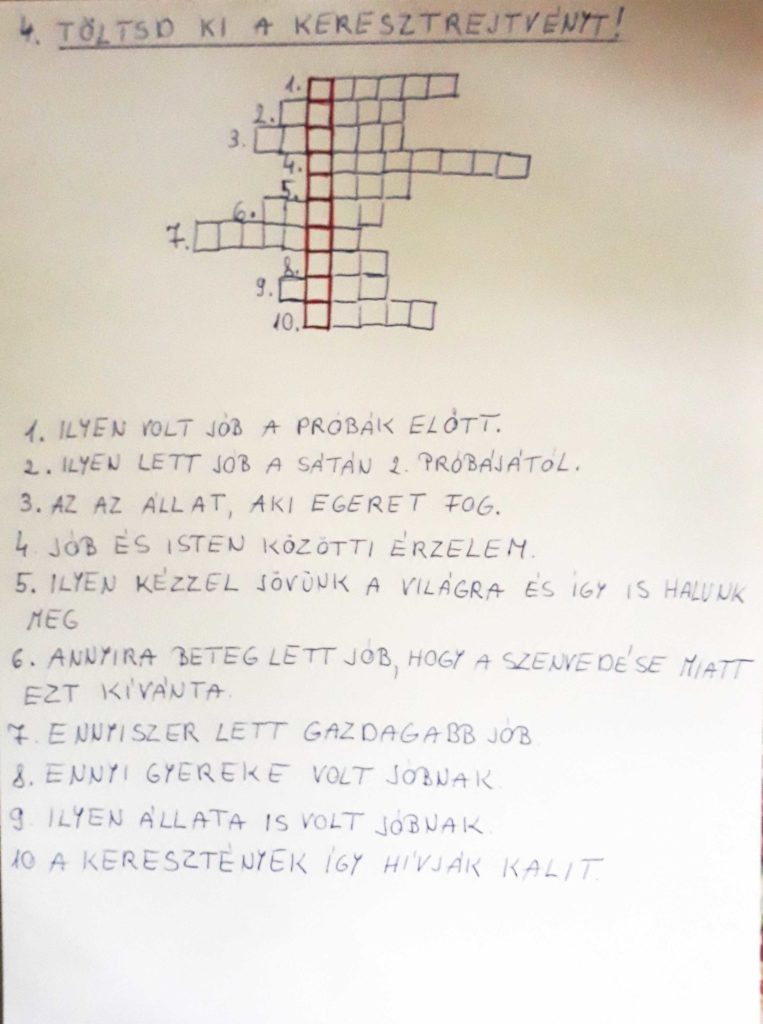 4. TÖLTSD KI A KERESZTREJTVÉNYT!
1.
2.
3.
4.
5.
6.
7.
8.
9.
10.
1. ILYEN VOLT JÓB A PRÓBÁK ELŐTT.
2. ILYEN LETT JÓB A SÁTÁN 2. PRÓBÁJÁTÓL.
3. AZ AZ ÁLLAT, AKI EGERET FOG.
4. JÓB ÉS ISTEN KÖZÖTTI ÉRZELEM.
5. ILYEN KÉZZEL JÖVÜNK A VILÁGRA ÉS ÍGY IS HALUNK
MEG
6. ANNYIRA BETEG LETT JÓB, HOGY A SZENVEDÉSE MIATT
EZT KÍVÁNTA.
7. ENNYISZER LETT GAZDAGABB JÓB
8. ENNYI GYEREKE VOLT JÓBNAK.
9. ILYEN ÁLLATA IS VOLT JÓBNAK.
10 A KERESZTÉNYEK ÍGY HÍVJÁK KALIT.